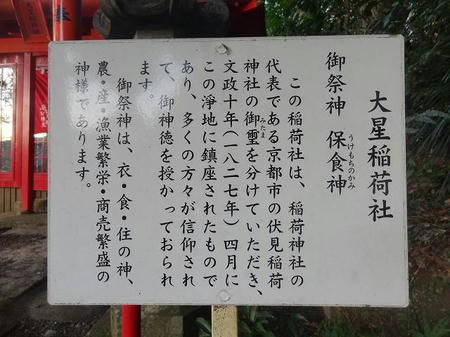 大星稲荷社
御祭神 保食神
うけもちのかみ
この稲荷社は、稲荷神社の
代表である京都市の伏見稲荷
神社の御璽を分けていただき、
みたま
文政十年(一八二七年)四月に
この浄地に鎮座されたもので
あり、多くの方々が信仰され
て、御神徳を授かっておられ
ます。
御祭神は、衣・食・住の神、
農・産・漁業繁栄・商売繁盛の
神様であります。